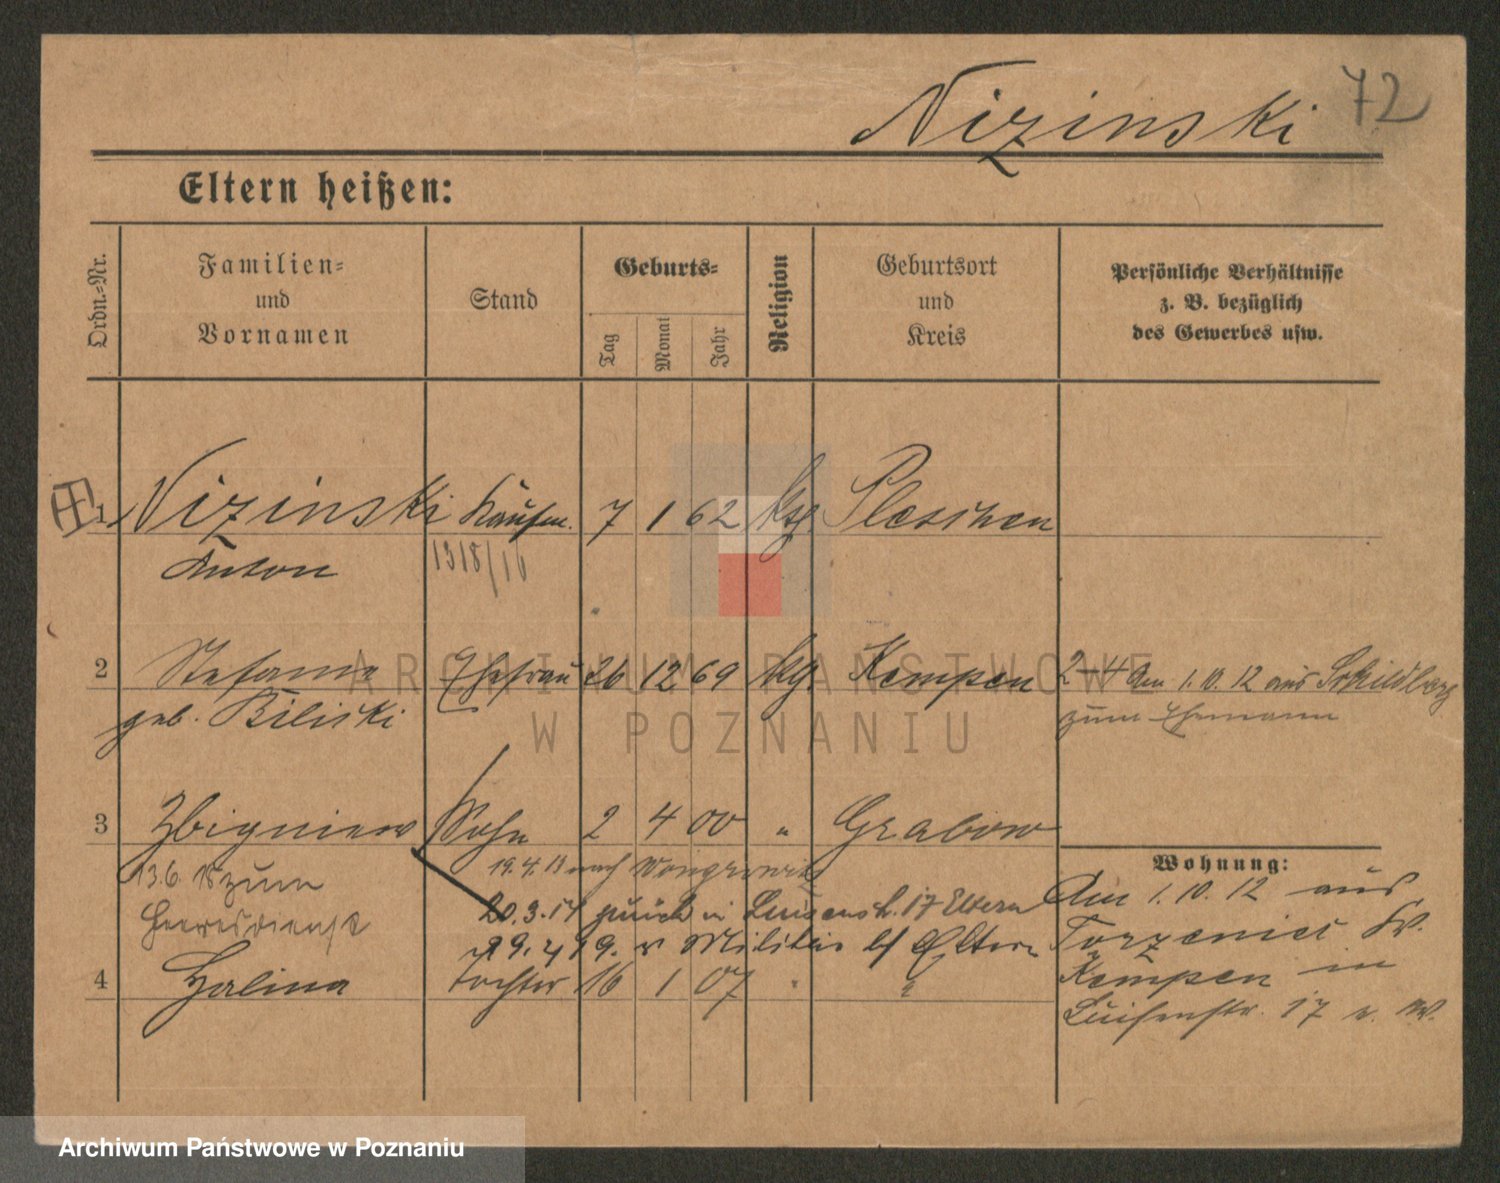 Nizinski 72
Eltern heißen:
Ordn.-Nr. Familien= und Vornamen Stand Geburts= Tag Monat Jahr Religion Geburtsort und Kreis Persönliche Verhältnisse z. B. bezüglich des Gewerbes usw.
1 Nizinski Kaufm. 7 1 62 ktl. Pleschen
Anton 1318/16
2 Stefania Ehefrau 26 12 69 ktl. Kempen 2-4 Am 1.10.12 aus Schildberg
geb. Biliski zum Ehemann
3 Zbigniew Sohn 2 4 00 " Grabow
Wohnung:
13.6.18 zum 19.4.13 nach Wongrowitz
Heeresdienst 20.3.17 zurück in Luisenstr. 17 Eltern Am 1.10.12 aus
29.4.19. v Militär b/ Eltern Kr.
4 Halina Tochter 16 1 07 " " Kempen in
Luisenstr. 17 v. W.
ARCHIWUM PAŃSTWOWE
W POZNANIU
Archiwum Państwowe w Poznaniu